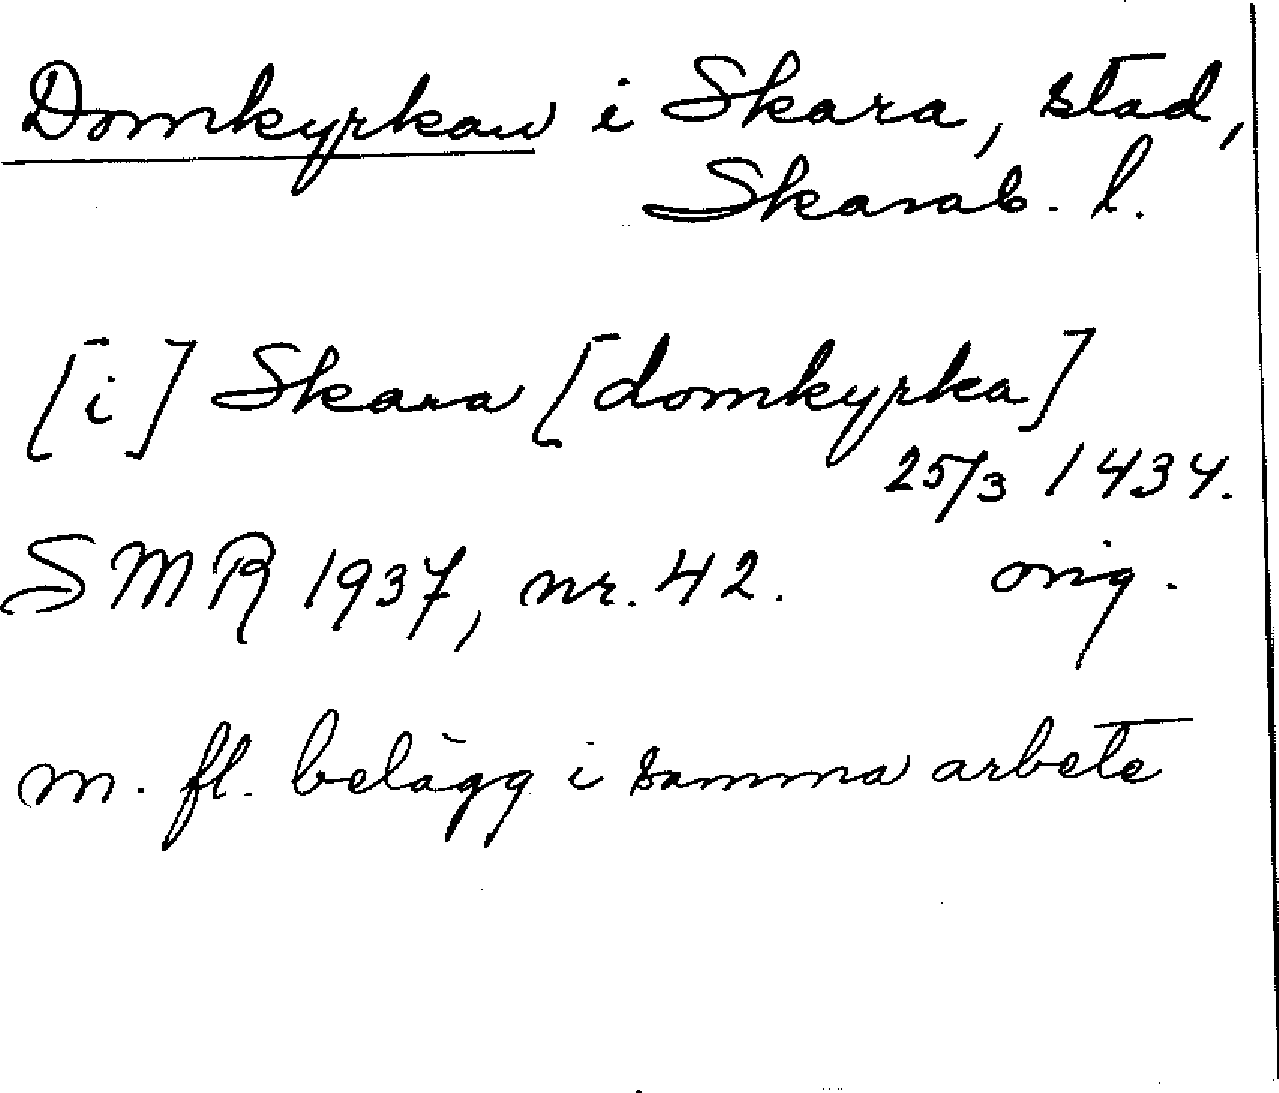 Domkyrkan i Skara, stad,
Skarab. l.
[i] Skara [domkyrka]
25/3 1434.
SMR 1937, nr. 42. orig.
m. fl. belägg i samma arbete